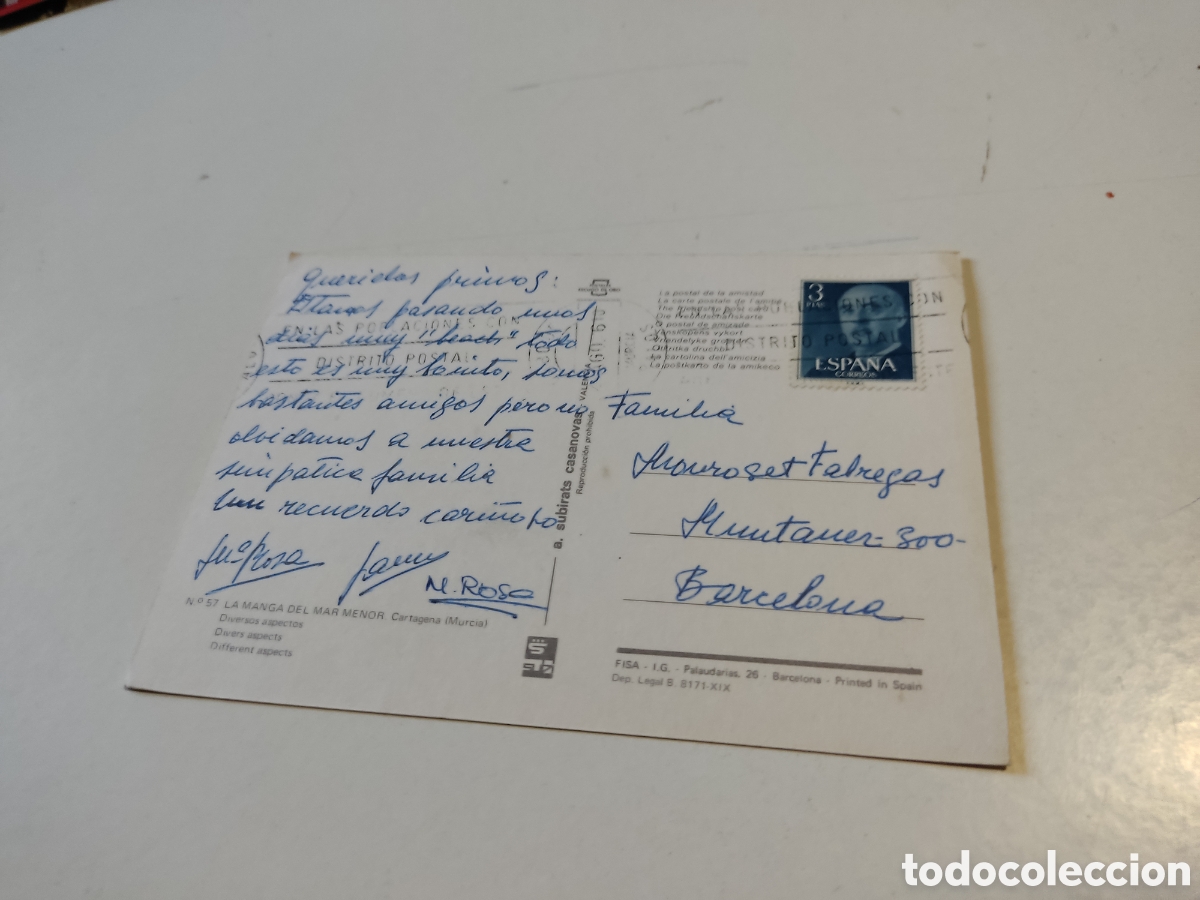 Queridos primos:
Estamos pasando unos
días muy "beach" todo
esto es muy bonito, somos
bastantes amigos pero no
olvidamos a nuestra
simpatica familia
Un recuerdo cariñoso
Mª Rosa
M. ROSA
Nº 57 LA MANGA DEL MAR MENOR. Cartagena (Murcia)
Diversos aspectos
Divers aspects
Different aspects
a. subirats casanovas - VALENCIA
Reproducción prohibida
EN LAS POBLACIONES CON
DISTRITO POSTAL
La postal de la amistad
La carte postale de l'amitié
The friendship post card
Die Freundschaftskarte
O postal da amizade
Vänskapens vykort
La cartolina dell'amicizia
La poŝtkarto de la amikeco
3
PTAS
ESPAÑA
CORREOS
DISTRITO POSTAL
Familia
Monroset Fabregas
Muntaner-300-
Barcelona
FISA - I.G. - Palaudarias, 26 - Barcelona - Printed in Spain
Dep. Legal B. 8171-XIX
todocoleccion.net